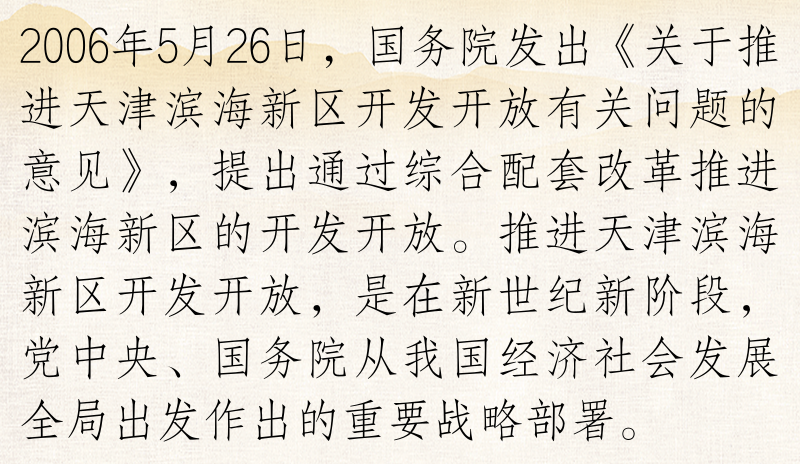 2006年5月26日，国务院发出《关于推
进天津滨海新区开发开放有关问题的
意见》，提出通过综合配套改革推进
滨海新区的开发开放。推进天津滨海
新区开发开放，是在新世纪新阶段，
党中央、国务院从我国经济社会发展
全局出发作出的重要战略部署。